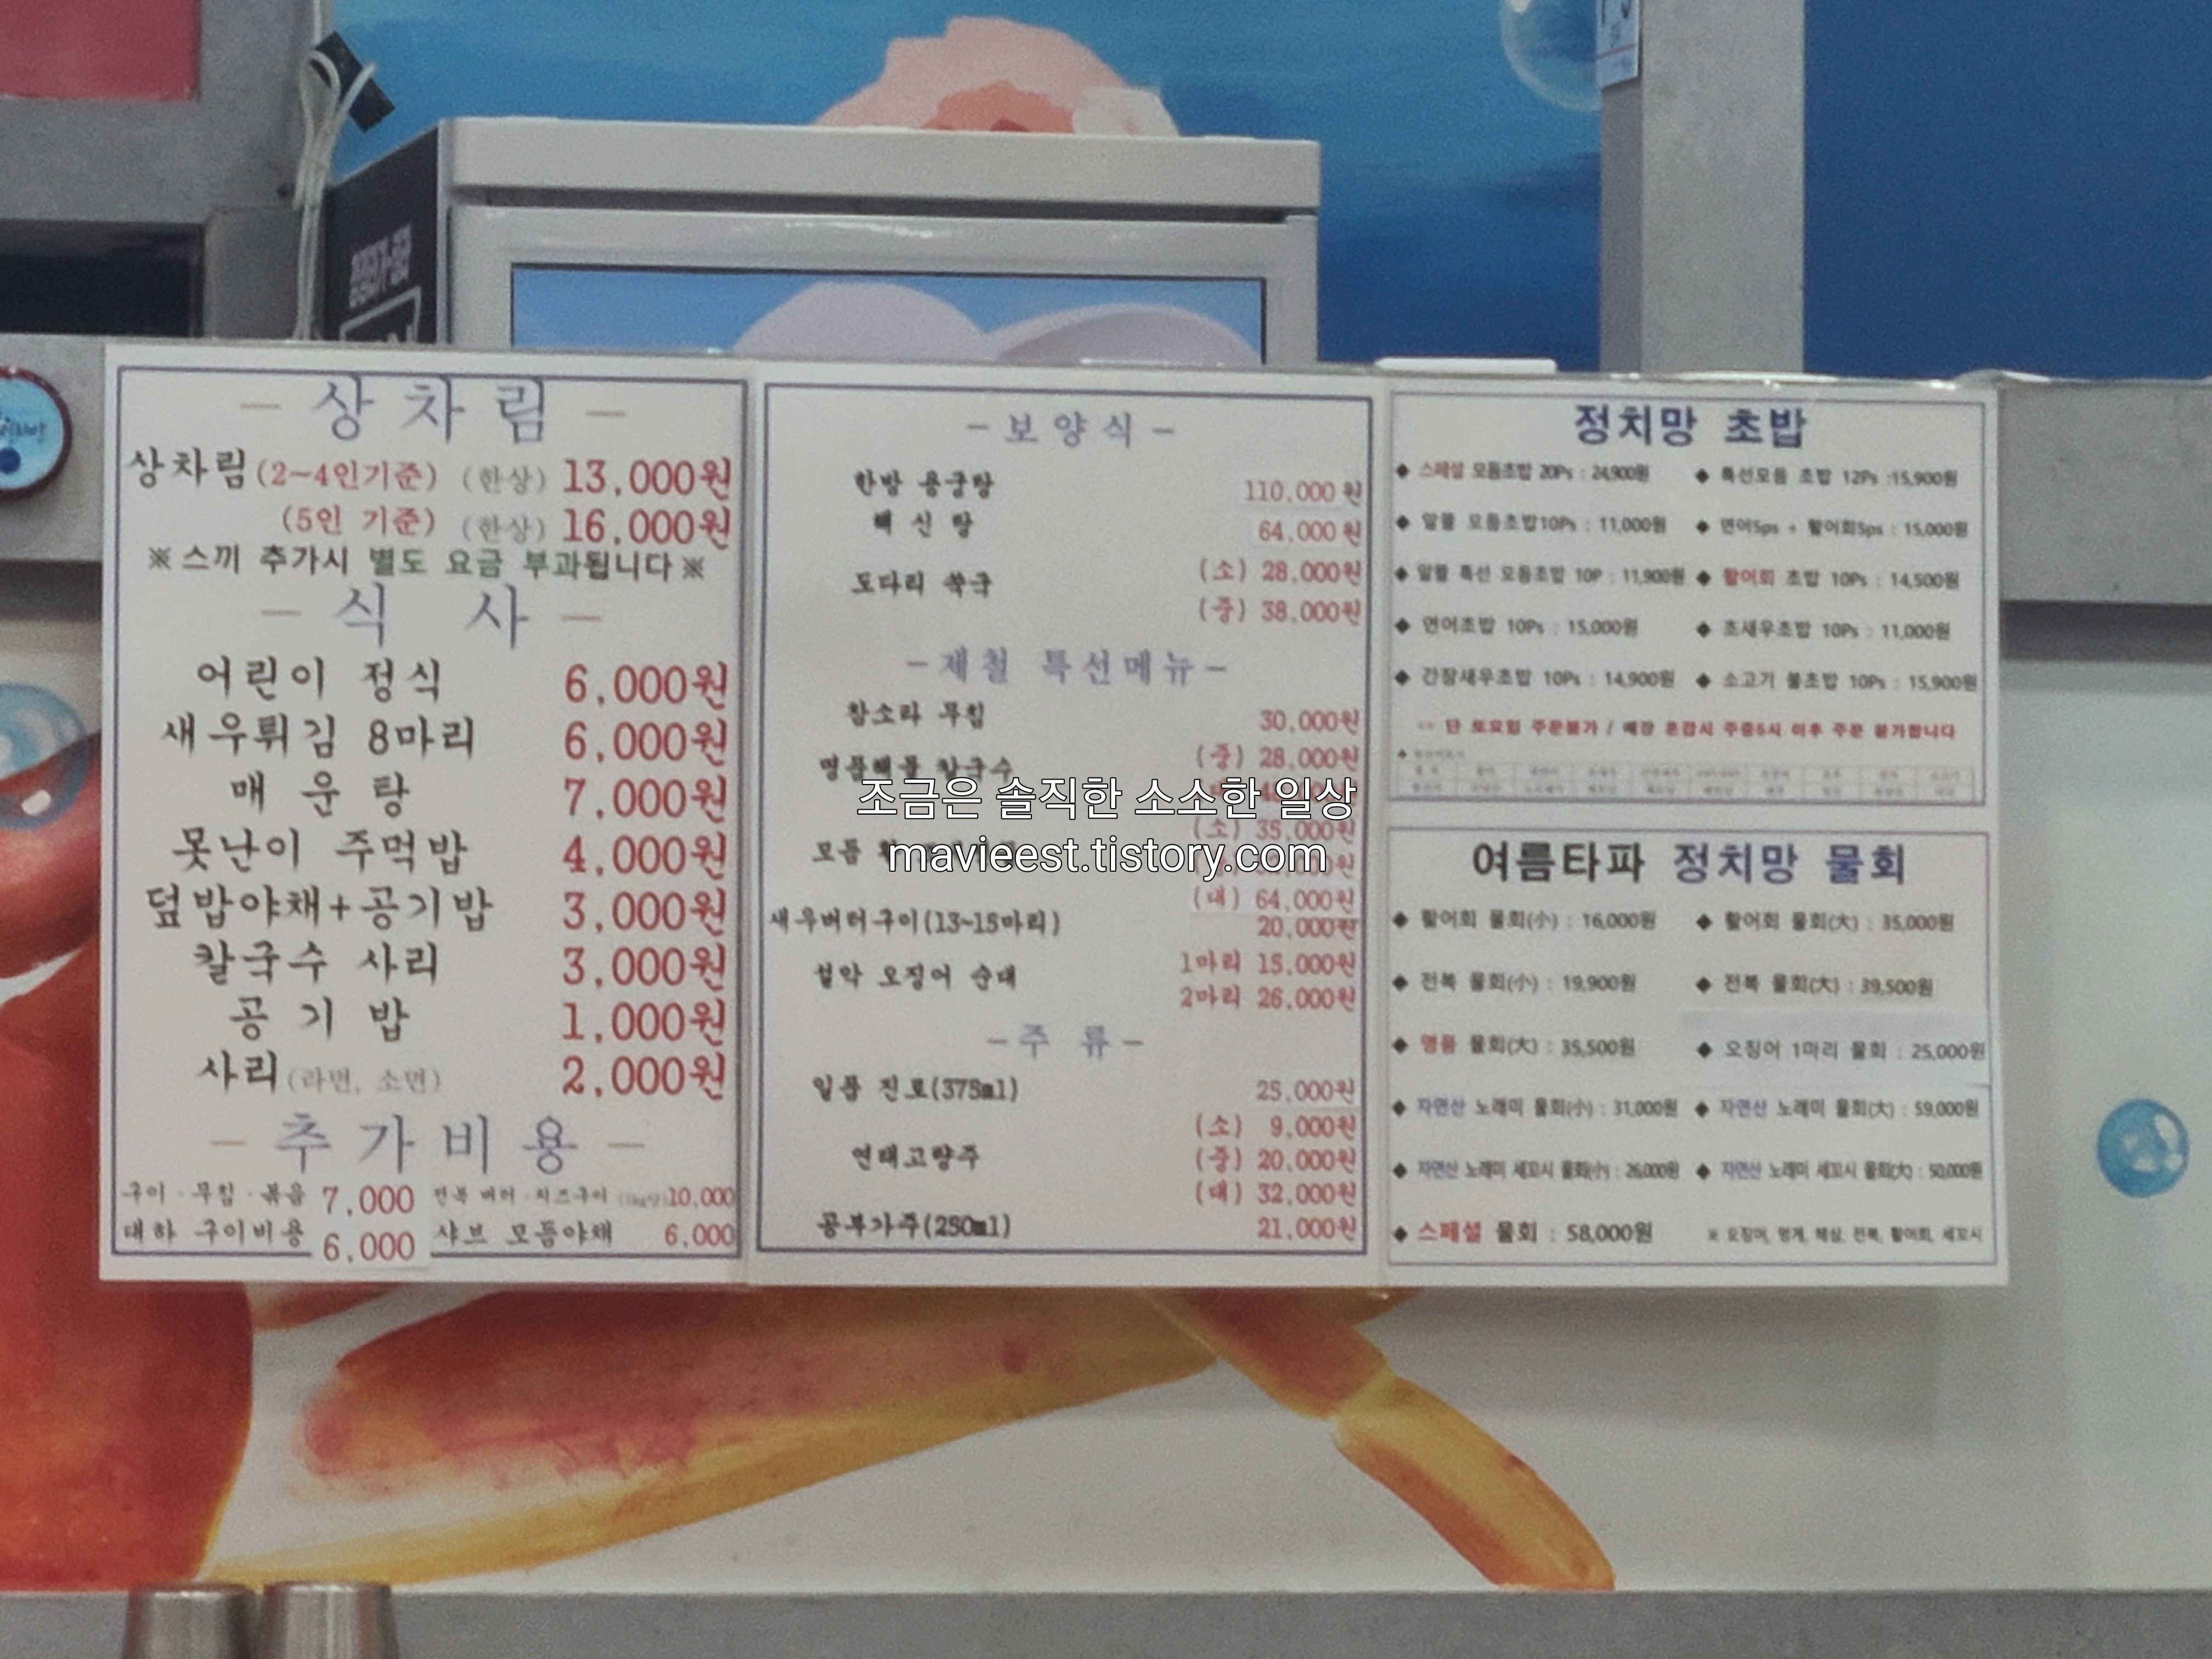 - 상차림 -
상차림(2~4인기준) (한상) 13,000원
(5인 기준) (한상) 16,000원
※스끼 추가시 별도 요금 부과됩니다※
- 식 사 -
어린이 정식 6,000원
새우튀김 8마리 6,000원
매 운 탕 7,000원
못난이 주먹밥 4,000원
덮밥야채+공기밥 3,000원
칼국수 사리 3,000원
공 기 밥 1,000원
사리(라면, 소면) 2,000원
- 추가비용 -
구이·무침·볶음 7,000 전복 버터·치즈구이 10,000
대하 구이비용 6,000 샤브 모듬야채 6,000
- 보양식 -
한방 용궁탕 110,000원
해 신 탕 64,000원
도다리 쑥국 (소) 28,000원
(중) 38,000원
- 제철 특선메뉴 -
참소라 무침 30,000원
명품해물 칼국수 (중) 28,000원
모듬 (소) 35,000원
(대) 64,000원
새우버터구이(13~15마리) 20,000원
설악 오징어 순대 1마리 15,000원
2마리 26,000원
- 주 류 -
일품 진로(375ml) 25,000원
(소) 9,000원
연태고량주 (중) 20,000원
(대) 32,000원
공부가주(250ml) 21,000원
정치망 초밥
◆ 스페셜 모듬초밥 20Ps : 24,900원 ◆ 특선모듬 초밥 12Ps :15,900원
◆ 알뜰 모듬초밥10Ps : 11,000원 ◆ 연어5ps + 활어회5ps : 15,000원
◆ 알뜰 특선 모듬초밥 10P : 11,900원 ◆ 활어회 초밥 10Ps : 14,500원
◆ 연어초밥 10Ps : 15,000원 ◆ 초새우초밥 10Ps : 11,000원
◆ 간장새우초밥 10Ps : 14,900원 ◆ 소고기 불초밥 10Ps : 15,900원
단 토요일 주문불가 / 매장 혼잡시 주중5시 이후 주문 불가합니다
여름타파 정치망 물회
◆ 활어회 물회(小) : 16,000원 ◆ 활어회 물회(大) : 35,000원
◆ 전복 물회(小) : 19,900원 ◆ 전복 물회(大) : 39,500원
◆ 명품 물회(大) : 35,500원 ◆ 오징어 1마리 물회 : 25,000원
◆ 자연산 노래미 물회(小) : 31,000원 ◆ 자연산 노래미 물회(大) : 59,000원
◆ 자연산 노래미 세꼬시 물회(小) : 26,000원 ◆ 자연산 노래미 세꼬시 물회(大) : 50,000원
◆ 스페셜 물회 : 58,000원 ※ 오징어, 멍게, 해삼, 전복, 활어회, 세꼬시
조금은 솔직한 소소한 일상
mavieest.tistory.com